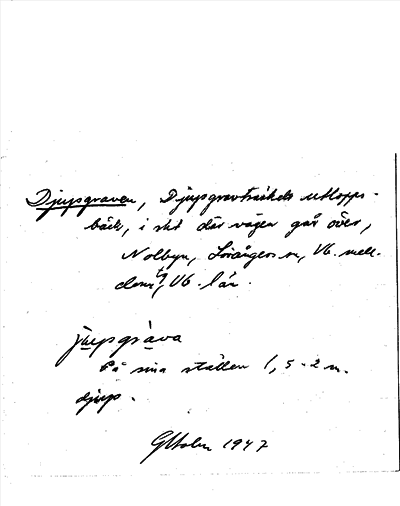 Djupgraven, Djupgravträskets utlopps-
bäck, i skt där vägen går över,
Nolbyn, Lövångers sn, Vb. mell.
doms tg, Vb. län.
ju̲pgrà̲va
På sina ställen 1,5-2 m.
djup.
GHolm 1947